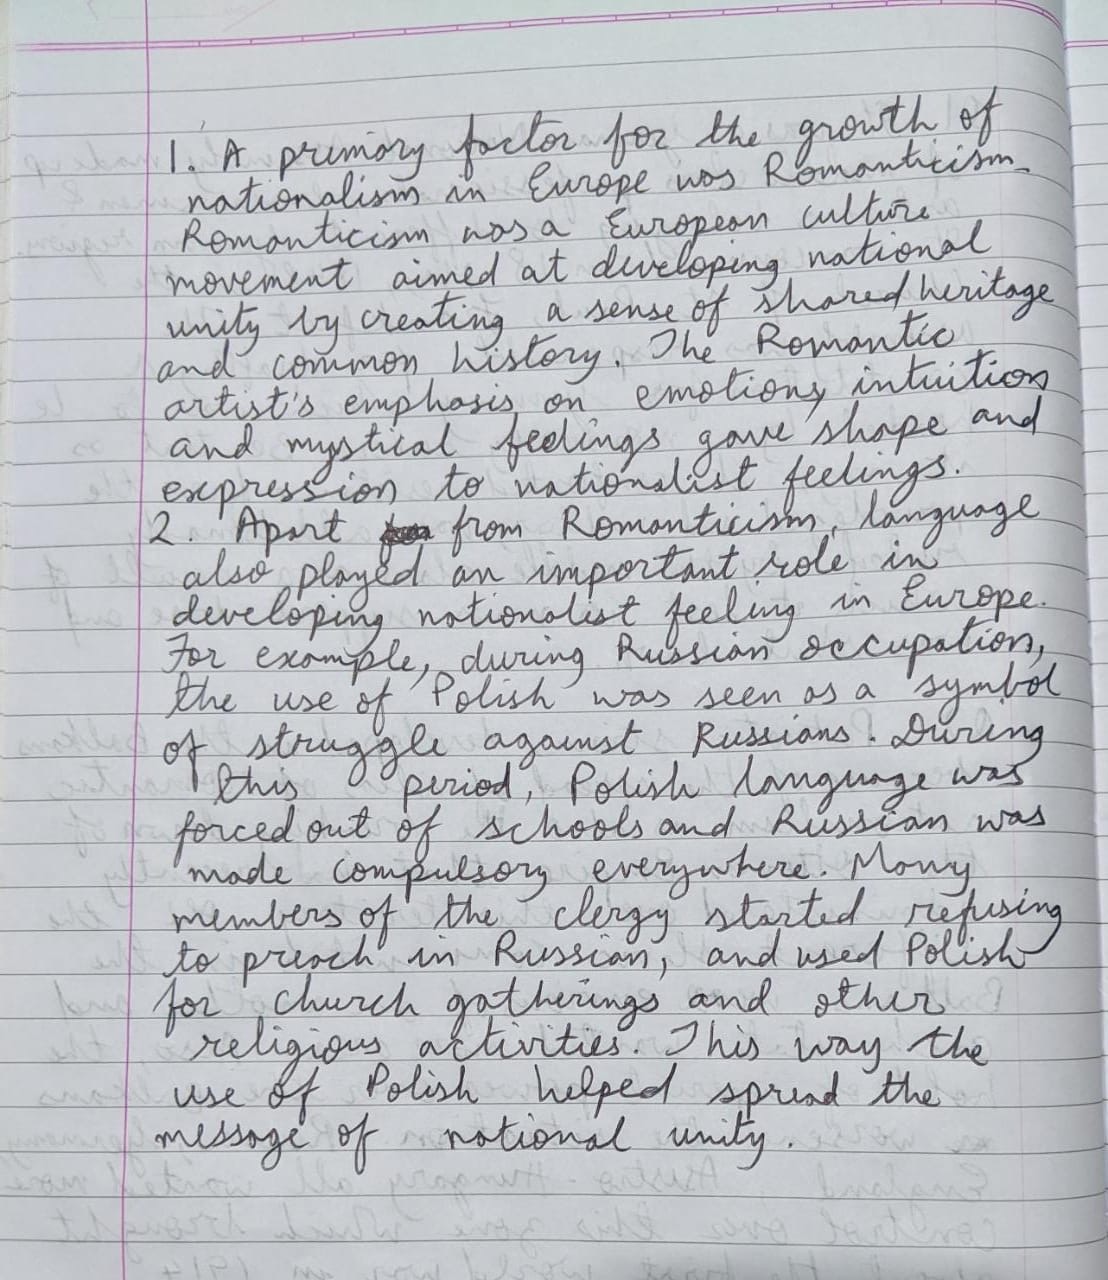 1. A primary factor for the growth of
nationalism in Europe was Romanticism.
Romanticism was a European culture
movement aimed at developing national
unity by creating a sense of shared heritage
and common history. The Romantic
artist's emphasis on emotions, intuition
and mystical feelings gave shape and
expression to nationalist feelings.
2. Apart from Romanticism, language
also played an important role in
developing nationalist feeling in Europe.
For example, during Russian occupation,
the use of Polish was seen as a symbol
of struggle against Russians. During
this period, Polish language was
forced out of schools and Russian was
made compulsory everywhere. Many
members of the clergy started refusing
to preach in Russian, and used Polish
for church gatherings and other
religious activities. This way the
use of Polish helped spread the
message of national unity.